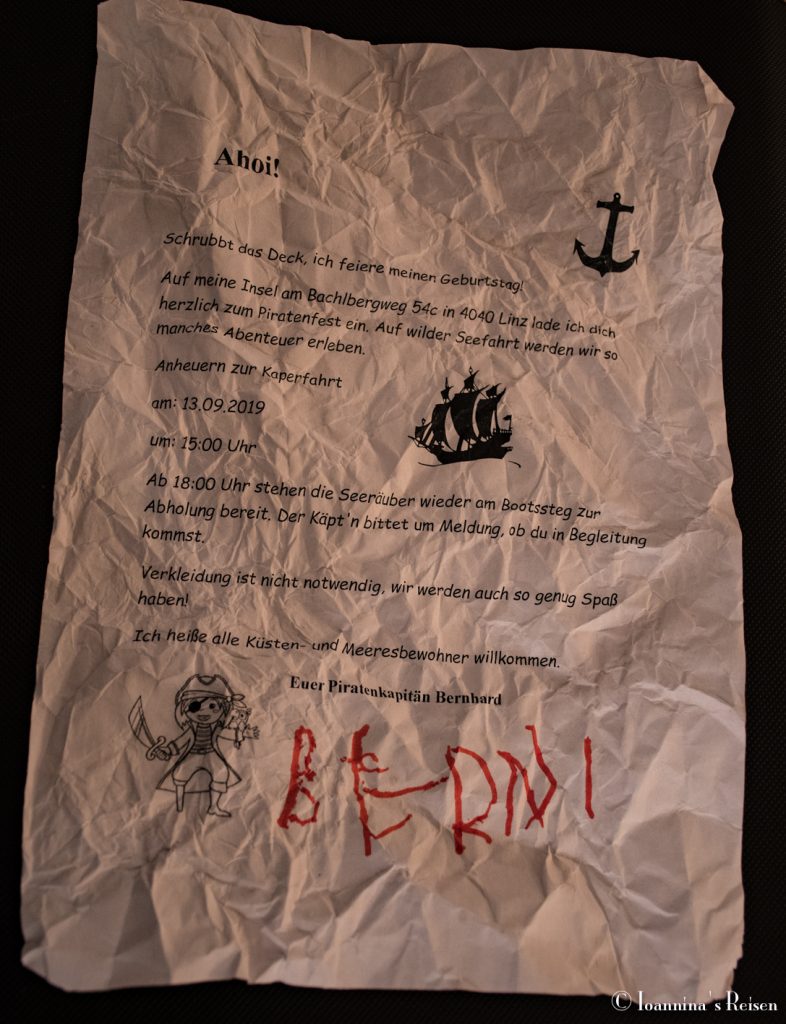 Ahoi!
Schrubbt das Deck, ich feiere meinen Geburtstag!
Auf meine Insel am Bachlbergweg 54c in 4040 Linz lade ich dich
herzlich zum Piratenfest ein. Auf wilder Seefahrt werden wir so
manches Abenteuer erleben.
Anheuern zur Kaperfahrt
am: 13.09.2019
um: 15:00 Uhr
Ab 18:00 Uhr stehen die Seeräuber wieder am Bootssteg zur
Abholung bereit. Der Käpt'n bittet um Meldung, ob du in Begleitung
kommst.
Verkleidung ist nicht notwendig, wir werden auch so genug Spaß
haben!
Ich heiße alle Küsten- und Meeresbewohner willkommen.
Euer Piratenkapitän Bernhard
BERNI
© Ioannina's Reisen